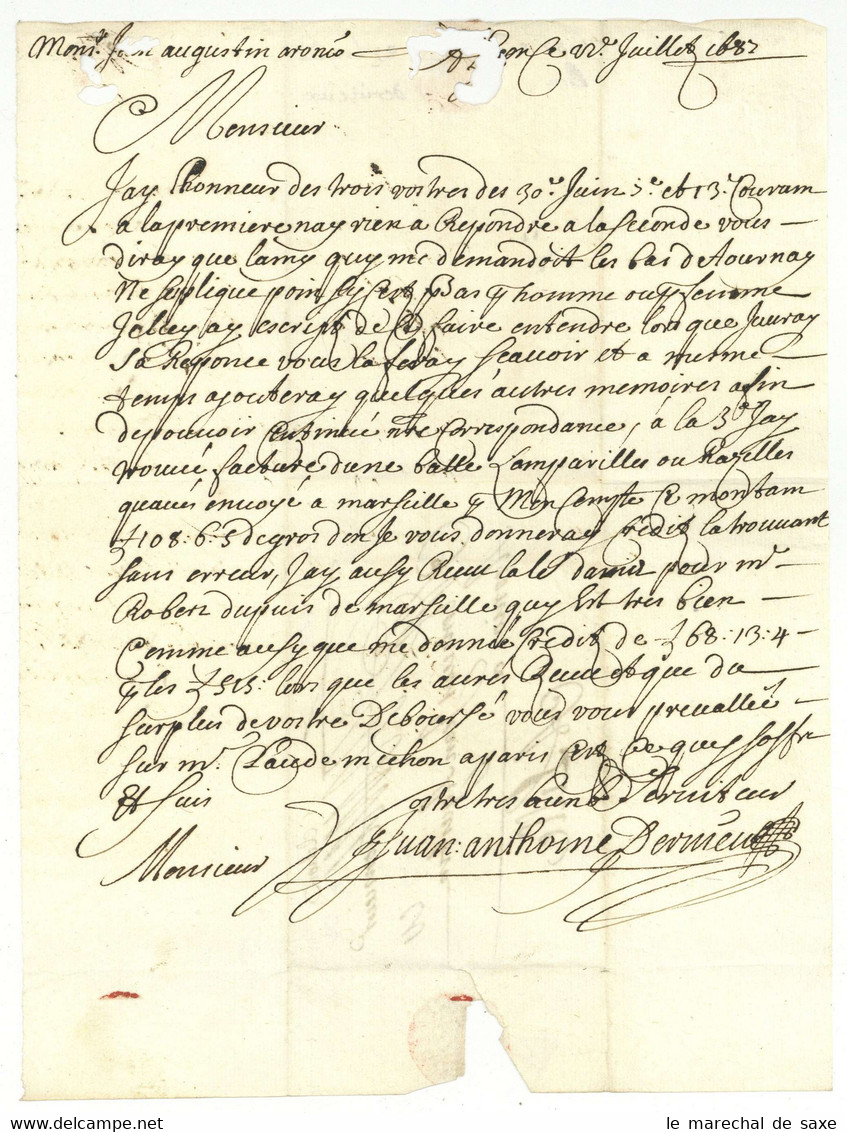 Mons.r augustin aronio ce 22.e Juillet 1687
Monsieur
Jay lhonneur des trois vostres des 30.e Juin 3.e et 13.e Couram
a la premiere nay rien a Repondre a la seconde vous
diray que lamy quy me demandoit les bas de tournay
Ne sesplique poin sy cest pas homme ou femme
Je luy ay escript de faire entendre lors que Jauray
sa Reponce vous la feray scauoir et a mesme
temps ajouteray quelques autres memoires afin
de pouvoir nre Correspondance, a la 3.e Jay
trouué facture dune balle Lamparilles ou Razelles
quaués envoyé a marseille Mon Compte montam
108: 6: 5 de gros don Je vous donneray Crédit la trouuant
sans erreur, Jay aussy Receu la le pour m.r
Robert dupuis de marseille quy Est tres bien
Comme aussy que me donnié Crédit de 68: 13: 4
les 515: lors que les aures Receu et que du
surplus de vostre Deboursé vous vous prevallie
sur m.r Claude michon a paris ce quy soffre
Et suis Vostre tres Serviteur
Monsieur Juan: anthoine Dervieu
le marechal de saxe